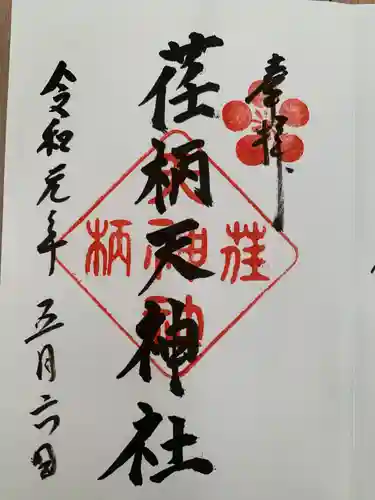 奉拝
荏柄天神社
令和元年 五月六日
荏柄